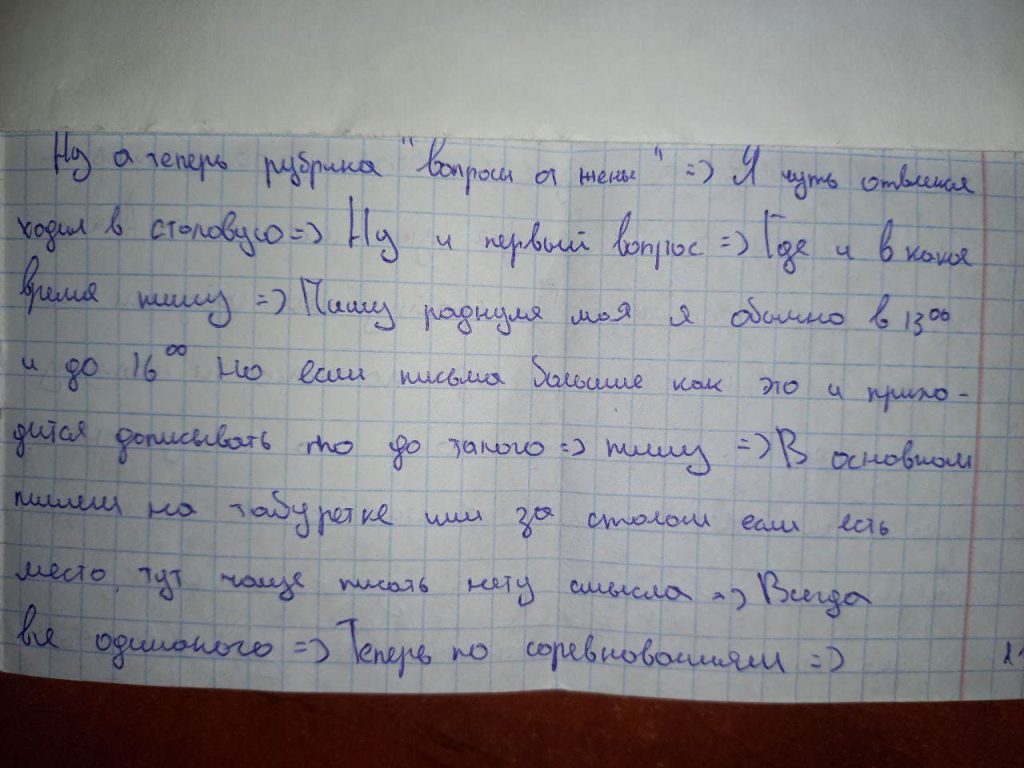 Ну а теперь рубрика "вопросы от жены" => Я чуть отвлекся
ходил в столовую => Ну и первый вопрос => Где и в какое
время пишу => Пишу роднуля моя я обычно в 13⁰⁰
и до 16⁰⁰ Но если письма большие как это и прихо-
дится дописывать то до такого => пишу => В основном
пишем на табуретке или за столом если есть
место, тут чаще писать нету смысла => Всегда
все одинаково => Теперь по соревнованиям =>